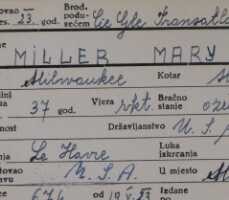 ovao 23. god. Brod. podu- zećem Cie Gle Transatla
MILLER MARY
Milwaukee Kotar
37 god. Vjera rkt. Bračno stanje
nost Državljanstvo U.S.
nja Le Havre Luka iskrcanja
tovao U.S.A. U mjesto
674 od Izdane po